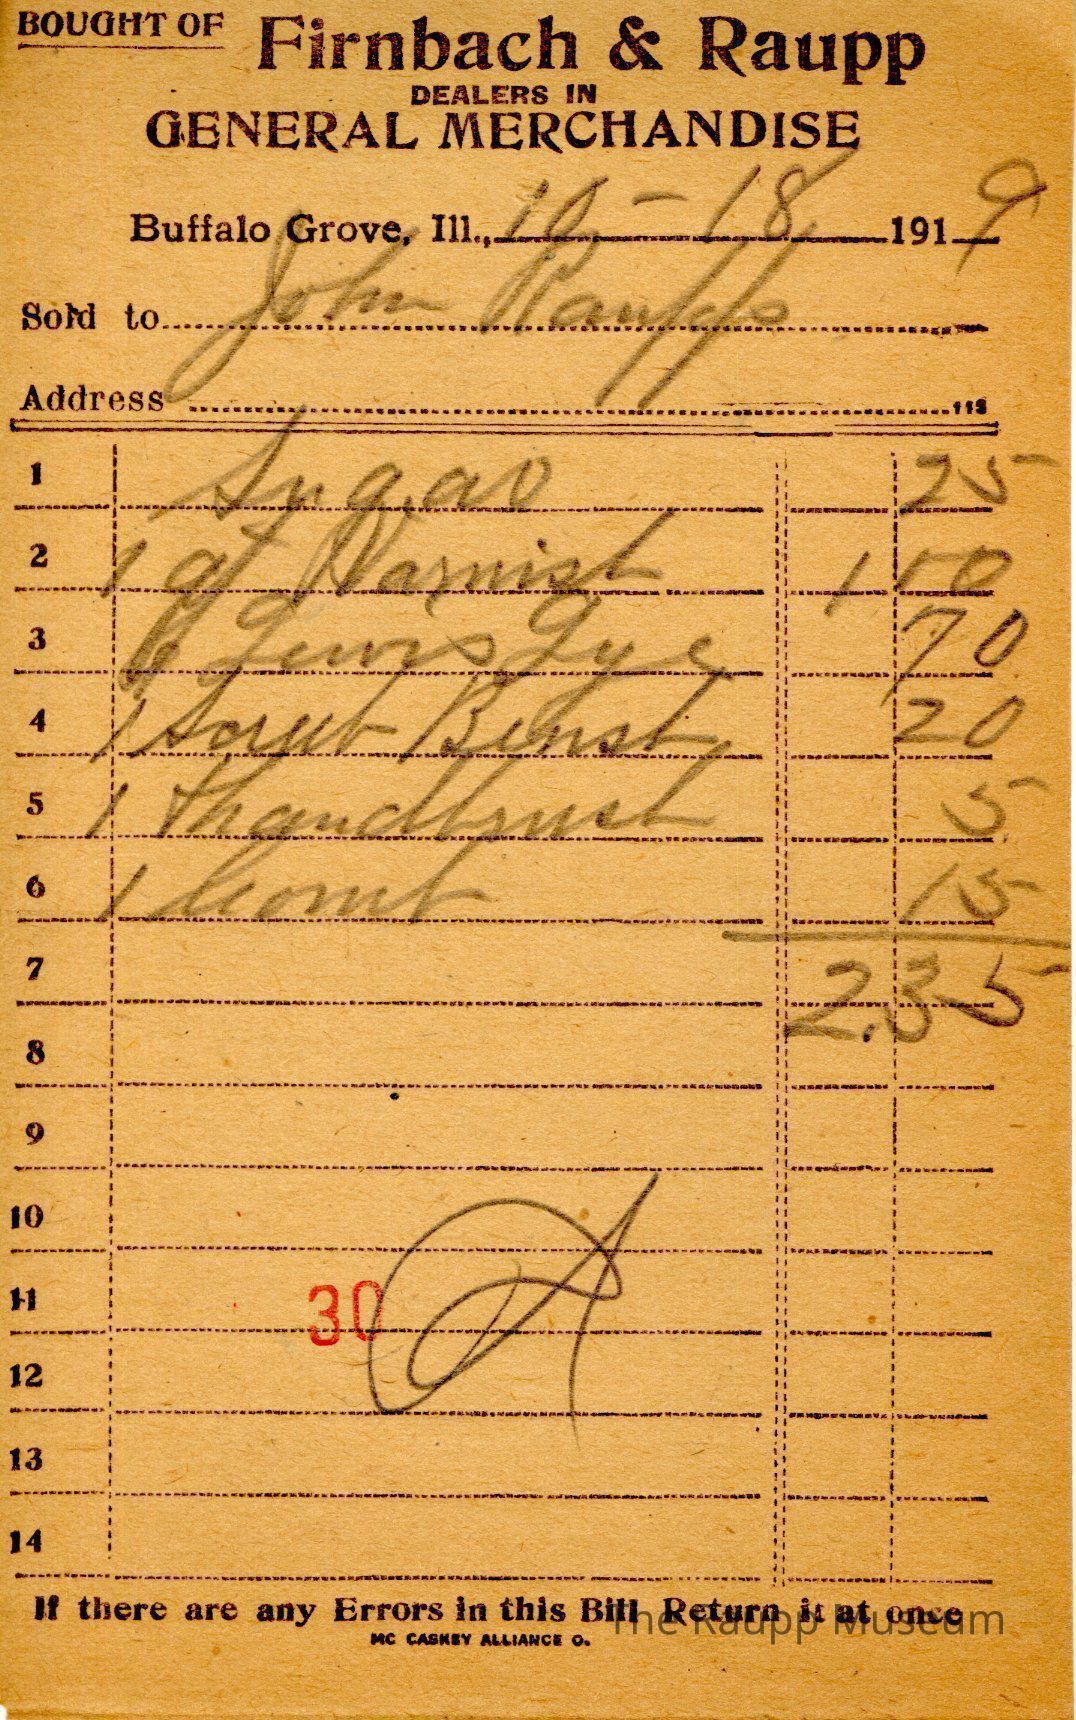 BOUGHT OF Firnbach & Raupp
DEALERS IN
GENERAL MERCHANDISE
Buffalo Grove, Ill., 10-18 1919
Sold to John Raupp
Address
1 Sugar 25
2 1 qt Varnish 1 00
3 6 Lewis Lye 70
4 1 Scrub Brush 20
5 1 Handbrush 5
6 1 Comb 15
7 2.35
8
9
10
11 30
12
13
14
If there are any Errors in this Bill Return it at once
The Raupp Museum
MC CASKEY ALLIANCE O.